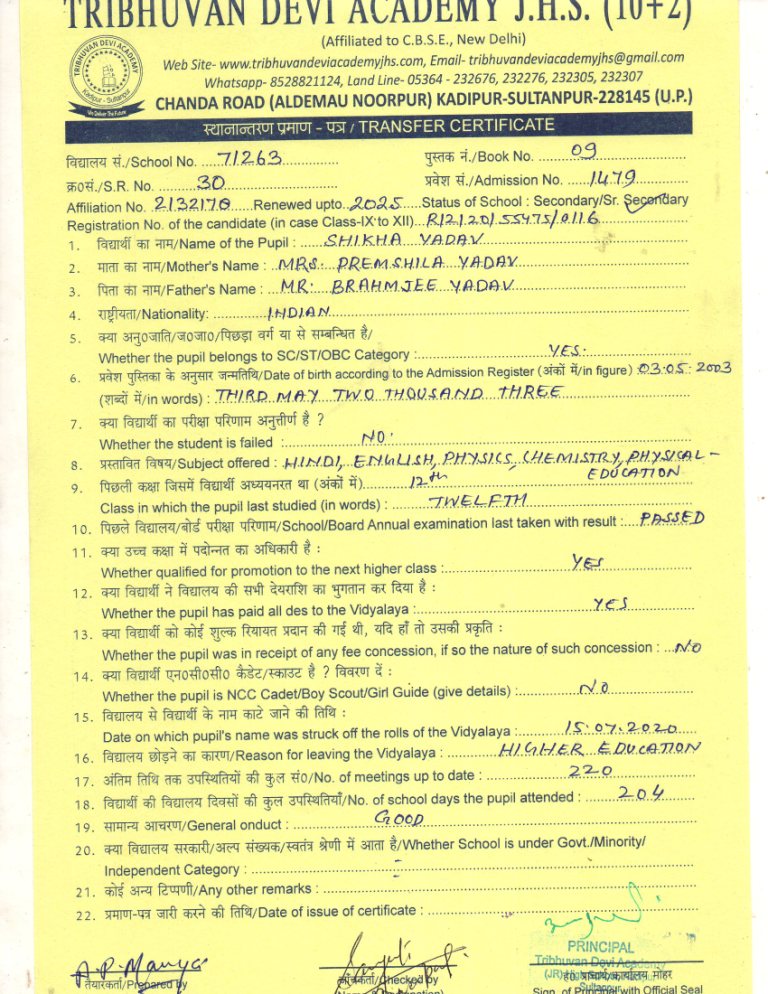 TRIBHUVAN DEVI ACADEMY J.H.S. (10+2)
(Affiliated to C.B.S.E., New Delhi)
Web Site- www.tribhuvandeviacademyjhs.com, Email- tribhuvandeviacademyjhs@gmail.com
Whatsapp- 8528821124, Land Line- 05364 - 232676, 232276, 232305, 232307
CHANDA ROAD (ALDEMAU NOORPUR) KADIPUR-SULTANPUR-228145 (U.P.)
TRIBHUVAN DEVI ACADEMY
Kadipur - Sultanpur
We Deliver The Future
स्थानान्तरण प्रमाण - पत्र / TRANSFER CERTIFICATE
विद्यालय सं./School No. 71263 पुस्तक नं./Book No. 09
क्र०सं./S.R. No. 30 प्रवेश सं./Admission No. 1479
Affiliation No. 2132170 Renewed upto 2025 Status of School : Secondary/Sr. Secondary
Registration No. of the candidate (in case Class-IX to XII) R/2/20/55475/0116
1. विद्यार्थी का नाम/Name of the Pupil : SHIKHA YADAV
2. माता का नाम/Mother's Name : MRS. PREMSHILA YADAV
3. पिता का नाम/Father's Name : MR. BRAHMJEE YADAV
4. राष्ट्रीयता/Nationality: INDIAN
5. क्या अनु०जाति/ज०जा०/पिछड़ा वर्ग या से सम्बन्धित है/
Whether the pupil belongs to SC/ST/OBC Category : YES.
6. प्रवेश पुस्तिका के अनुसार जन्मतिथि/Date of birth according to the Admission Register (अंकों में/in figure) 03.05.2003
(शब्दों में/in words) : THIRD MAY TWO THOUSAND THREE
7. क्या विद्यार्थी का परीक्षा परिणाम अनुत्तीर्ण है ?
Whether the student is failed : NO.
8. प्रस्तावित विषय/Subject offered : HINDI, ENGLISH, PHYSICS, CHEMISTRY, PHYSICAL-
EDUCATION
9. पिछली कक्षा जिसमें विद्यार्थी अध्ययनरत था (अंकों में) 12th
Class in which the pupil last studied (in words) : TWELFTH
10. पिछले विद्यालय/बोर्ड परीक्षा परिणाम/School/Board Annual examination last taken with result : PASSED
11. क्या उच्च कक्षा में पदोन्नत का अधिकारी है :
Whether qualified for promotion to the next higher class : YES
12. क्या विद्यार्थी ने विद्यालय की सभी देयराशि का भुगतान कर दिया है :
Whether the pupil has paid all des to the Vidyalaya : YES
13. क्या विद्यार्थी को कोई शुल्क रियायत प्रदान की गई थी, यदि हाँ तो उसकी प्रकृति :
Whether the pupil was in receipt of any fee concession, if so the nature of such concession : NO
14. क्या विद्यार्थी एन०सी०सी० कैडेट/स्काउट है ? विवरण दें :
Whether the pupil is NCC Cadet/Boy Scout/Girl Guide (give details) : NO
15. विद्यालय से विद्यार्थी के नाम काटे जाने की तिथि :
Date on which pupil's name was struck off the rolls of the Vidyalaya : 15.07.2020
16. विद्यालय छोड़ने का कारण/Reason for leaving the Vidyalaya : HIGHER EDUCATION
17. अंतिम तिथि तक उपस्थितियों की कुल सं०/No. of meetings up to date : 220
18. विद्यार्थी की विद्यालय दिवसों की कुल उपस्थितियाँ/No. of school days the pupil attended : 204
19. सामान्य आचरण/General onduct : GOOD
20. क्या विद्यालय सरकारी/अल्प संख्यक/स्वतंत्र श्रेणी में आता है/Whether School is under Govt./Minority/
Independent Category :
21. कोई अन्य टिप्पणी/Any other remarks :
22. प्रमाण-पत्र जारी करने की तिथि/Date of issue of certificate :
PRINCIPAL
Tribhuvan Devi Academy
Sultanpur
तैयारकर्ता/Prepared by
Checked by
ह० प्राचार्य कार्यालय मोहर
Sign. of Principal with Official Seal